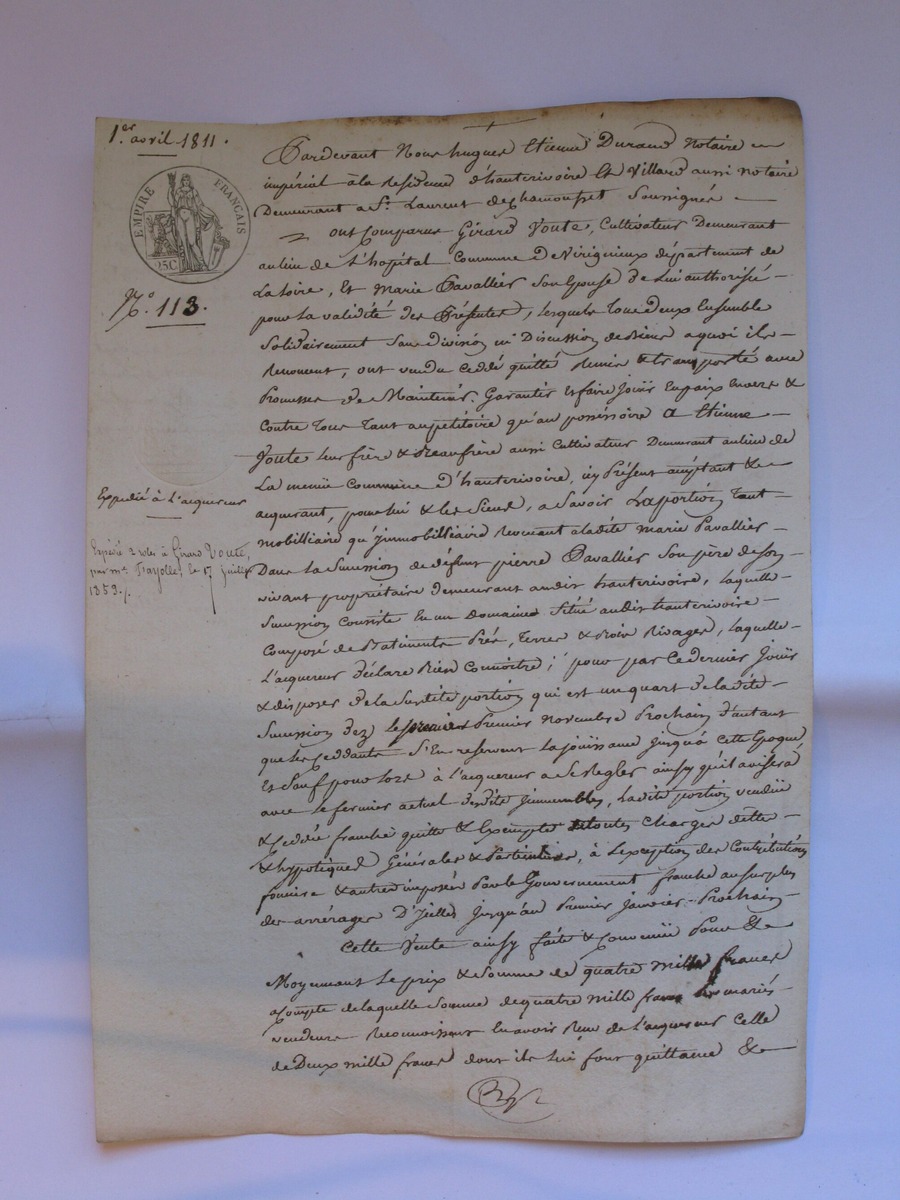 1.er avril 1811.
EMPIRE FRANÇAIS
25C
N.o 113.
Expedié à L'acquereur
Expédié 2 roles à Girard Voute,
par m.e Fayolle, le 17 juillet
1853.
Pardevant Nous hugues Etienne Durand Notaire
impérial à la Residence d'hauterivoire Et Villard aussi notaire
Demeurant a S.t Laurent de Chamousset Soussignés
ont Comparus Girard Voute, Cultivateur Demeurant
au lieu de L'hopital Commune De Virignieux département de
La Loire, Et Marie Pavallier Son Epouse de Lui authorisée
pour La validité des Présentes, Lesquels Tous Deux Ensemble
Solidairement Sans Division ni Discussion de Biens a quoi ils
Renoncent, ont vendu Ceddé quitté Remis & transporté avec
Promesse de Maintenir, Garantir Et faire Jouir En paix Envers &
Contre Tous Tant au pétitoire qu'au possessoire a Etienne
Voute Leur frère & Beaufrère aussi Cultivateur Demeurant au lieu de
La même Commune d'hauterivoire, icy Présent acceptant &
acquerant, pour lui & les Siens, a Savoir La portion Tant
mobilliaire qu'Jmmobilliaire Revenant à ladite Marie Pavallier
Dans La Succession de défunt pierre Pavallier Son père de Son
vivant proprietaire demeurant audit hauterivoire, Laquelle
Succession Consiste En un Domaine Situé audit hauterivoire
Composé de Batiments Prés, Terres & Bois Rivages, Laquelle
L'acquereur déclare Bien Connoitre; pour par Ce dernier Jouir
& disposer de la Susdite portion qui est un quart de la dite
Succession dez le Premier Novembre Prochain d'autant
que les Ceddants S'En reservent La jouissance Jusqu'à Cette Epoque
Et Sauf pour Lors à l'acquereur a Se Regler ainsy qu'il avisera
avec Le fermier actuel desdits Jmmeubles, Ladite portion vendue
& Ceddée franche quitte & Exempte de toutes Charges dettes
& hypotèques Générales & Particulières, à L'exception des Contributions
fonciere & autres imposées Par le Gouvernement franche au surplus
des arrérages D'Jcelles Jusqu'au Premier Janvier Prochain
Cette Vente ainsy faite & Convenüe Pour &
Moyennant Le prix & Somme de quatre Mille francs
a Compte de laquelle Somme de quatre Mille francs Les mariés
vendeurs Reconnoissent En avoir Reçu de L'acquereur Celle
de Deux mille francs dont ils Lui font quittance &